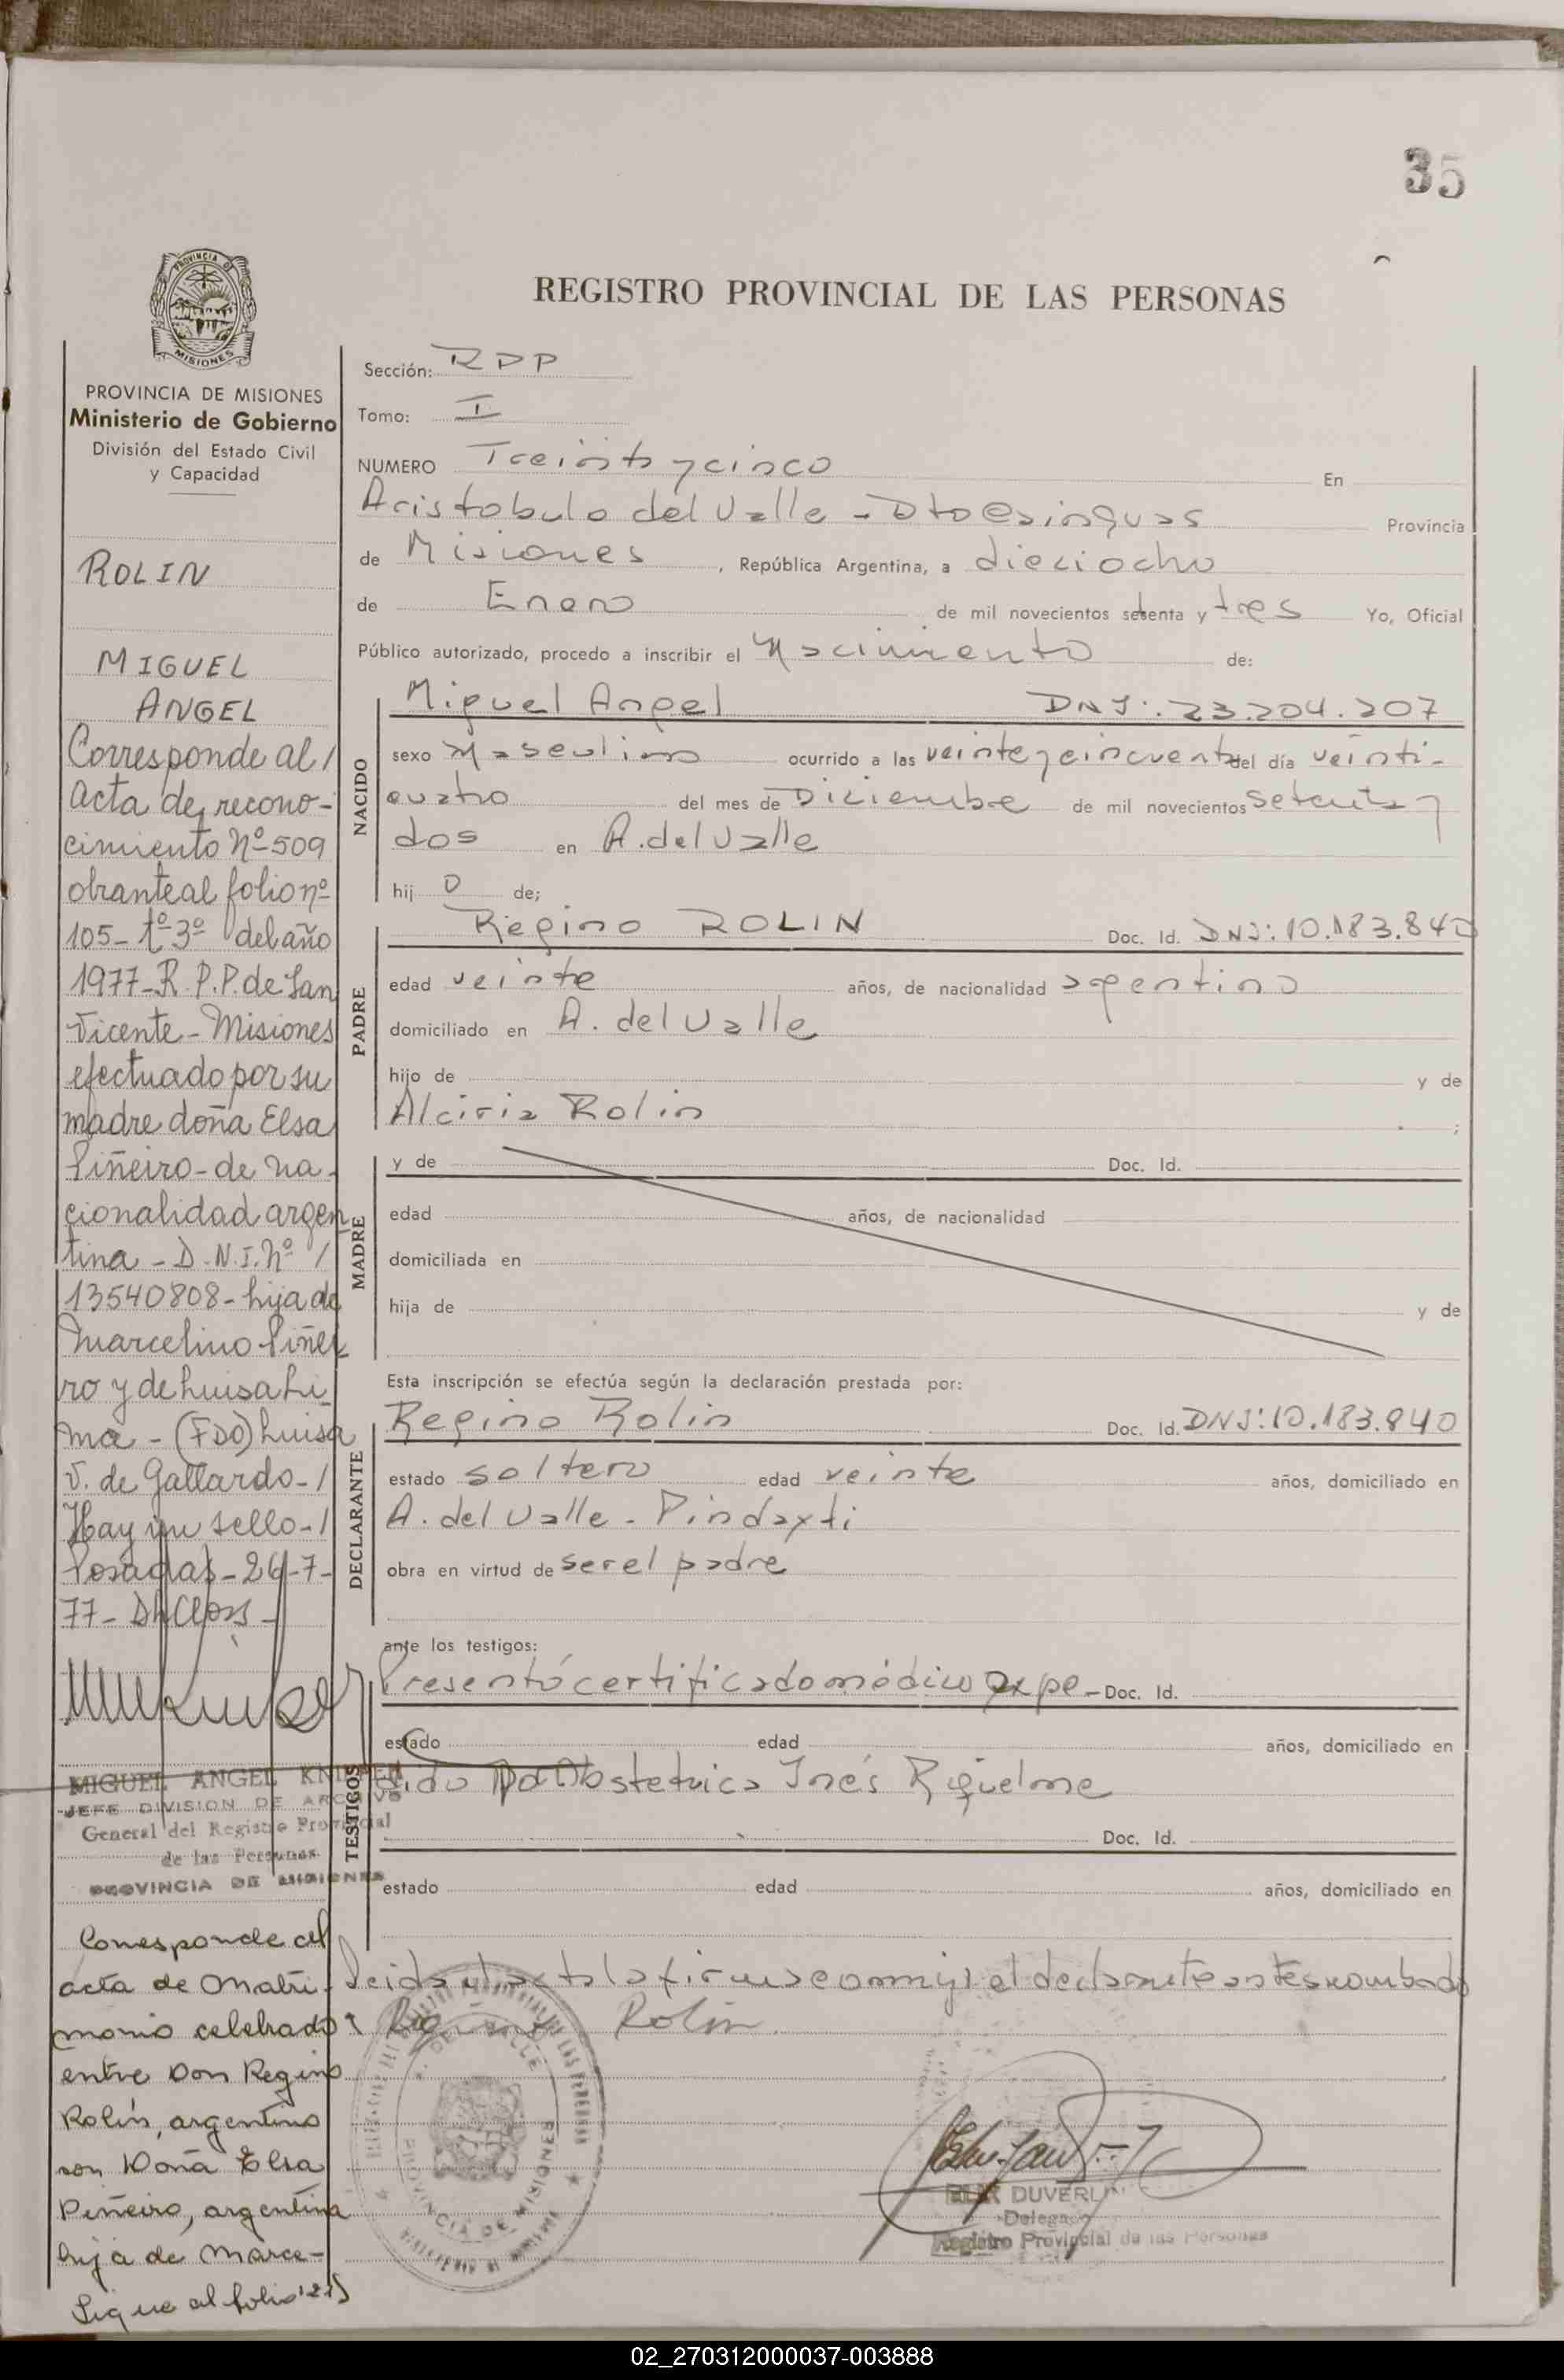 35
REGISTRO PROVINCIAL DE LAS PERSONAS
PROVINCIA DE MISIONES
PROVINCIA DE MISIONES
Ministerio de Gobierno
División del Estado Civil
y Capacidad
ROLIN
MIGUEL
ANGEL
Corresponde al /
acta de recono-
cimiento Nº 509
obrante al folio nº
105 - tº 3º del año
1977 - R. P.P. de San
Vicente - Misiones
efectuado por su
madre doña Elsa
Piñeiro - de na-
cionalidad argen
tina - D.N.I. Nº /
13540808 - hija de
Marcelino Piñei
ro y de Luisa Li
ma - (FDO) Luisa
V. de Gallardo - /
Hay un sello - /
Posadas - 26-7-
77 -
MIGUEL ANGEL
JEFE DIVISION DE ARCHIVO
General del Registro Provincial
de las Personas
PROVINCIA DE MISIONES
Corresponde al
acta de Matri-
monio celebrado
entre Don Regino
Rolín, argentino
con Doña Elsa
Piñeiro, argentina
hija de Marce-
Sigue al folio
Sección: RPP
Tomo: I
NUMERO Treinta y cinco En
Aristobulo del Valle - Dto Cainguas Provincia
de Misiones, República Argentina, a dieciocho
de Enero de mil novecientos setenta y tres Yo, Oficial
Público autorizado, procedo a inscribir el Nacimiento de:
NACIDO
Miguel Angel DNI: 23.204.207
sexo Masculino ocurrido a las veinte y cincuenta del día veinti-
cuatro del mes de Diciembre de mil novecientos setenta y
dos en A. del Valle
hij o de;
PADRE
Regino ROLIN Doc. Id. DNI: 10.183.840
edad veinte años, de nacionalidad argentino
domiciliado en A. del Valle
hijo de y de
Alciria Rolin ;
MADRE
y de Doc. Id.
edad años, de nacionalidad
domiciliada en
hija de y de
Esta inscripción se efectúa según la declaración prestada por:
DECLARANTE
Regino Rolin Doc. Id. DNI: 10.183.840
estado soltero edad veinte años, domiciliado en
A. del Valle - Pindayti
obra en virtud de ser el padre
ante los testigos:
TESTIGOS
Presentó certificado médico expe- Doc. Id.
estado edad años, domiciliado en
dido Obstetrica Inés Riquelme
Doc. Id.
estado edad años, domiciliado en
Leida el acta la firma conmigo el declarante antes nombrado
Regino Rolin
DUVERLI
Delegado
Registro Provincial de las Personas
02_270312000037-003888